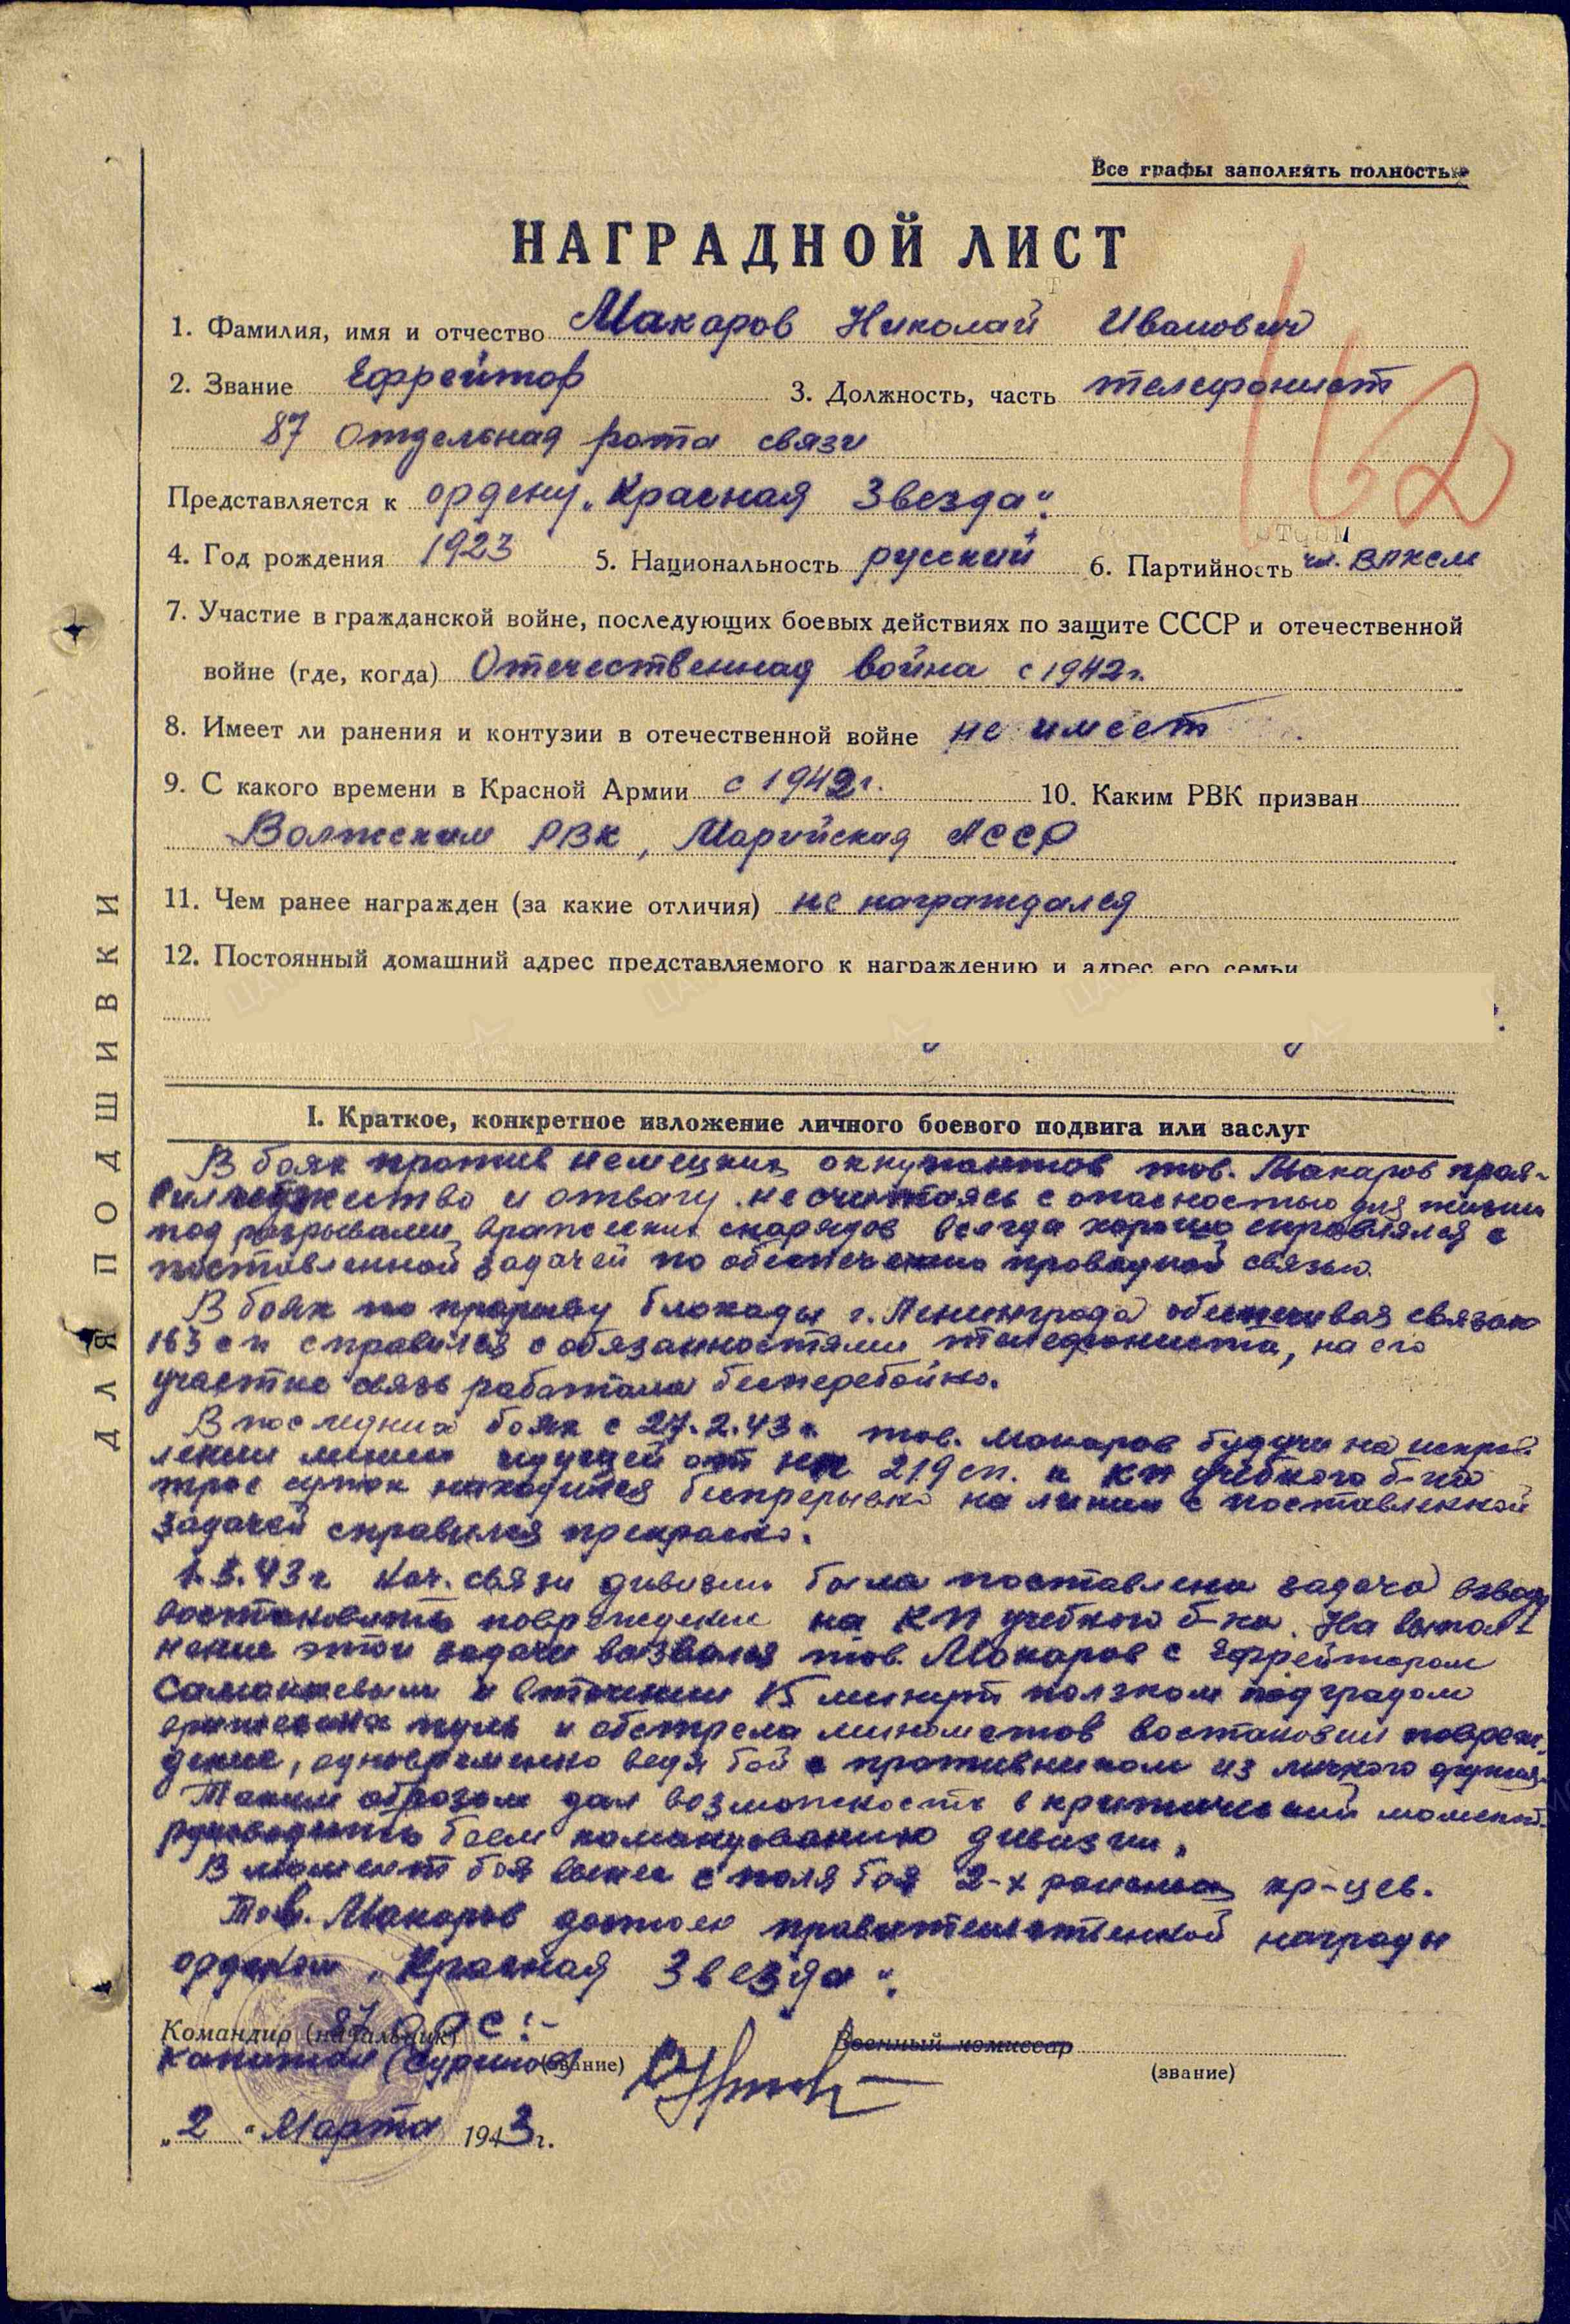 Все графы заполнять полностью
НАГРАДНОЙ ЛИСТ
1. Фамилия, имя и отчество Макаров Николай Иванович
2. Звание Ефрейтор 3. Должность, часть телефонист
87 отдельная рота связи
162
Представляется к ордену „Красная Звезда“.
4. Год рождения 1923 5. Национальность русский 6. Партийность чл. ВЛКСМ
7. Участие в гражданской войне, последующих боевых действиях по защите СССР и отечественной
войне (где, когда) Отечественная война с 1942 г.
8. Имеет ли ранения и контузии в отечественной войне не имеет
9. С какого времени в Красной Армии с 1942 г. 10. Каким РВК призван
Волжским РВК, Марийская АССР
11. Чем ранее награжден (за какие отличия) не награждался
12. Постоянный домашний адрес представляемого к награждению и адрес его семьи
ДЛЯ ПОДШИВКИ
I. Краткое, конкретное изложение личного боевого подвига или заслуг
В боях против немецких оккупантов тов. Макаров проя-
вил мужество и отвагу. не считаясь с опасностью для жизни
под разрывами вражеских снарядов всегда хорошо справлялся с
поставленной задачей по обеспечению проводной связью.
В боях по прорыву блокады г. Ленинграда обеспечивая связью
163 сп справился с обязанностями телефониста, на его
участке связь работала бесперебойно.
В последних боях с 27.2.43 г. тов. Макаров будучи на исправ-
лении линии идущей от нп 219 сп. к КП учебного б-на
трое суток находился беспрерывно на линии с поставленной
задачей справился прекрасно.
1.3.43 г. Нач. связи дивизии была поставлена задача взводу
востановить повреждение на КП учебного б-на. На выпол-
нение этой задачи вызвался тов. Макаров с Ефрейтором
и втечении 15 минут ползком под градом
вражеских пуль и обстрела минометов востановил повреж-
дение, одновременно ведя бой с противником из личного оружия.
Таким образом дал возможность в критический момент
руководить боем командованию дивизии.
В момент боя вынес с поля боя 2-х раненых кр-цев.
Тов. Макаров достоен правительственной награды
орденом „Красная Звезда“.
Командир (начальник) 87 орс:-
капитан (звание)
Военный комиссар
(звание)
„2“ Марта 1943 г.
ЦАМО.РФ